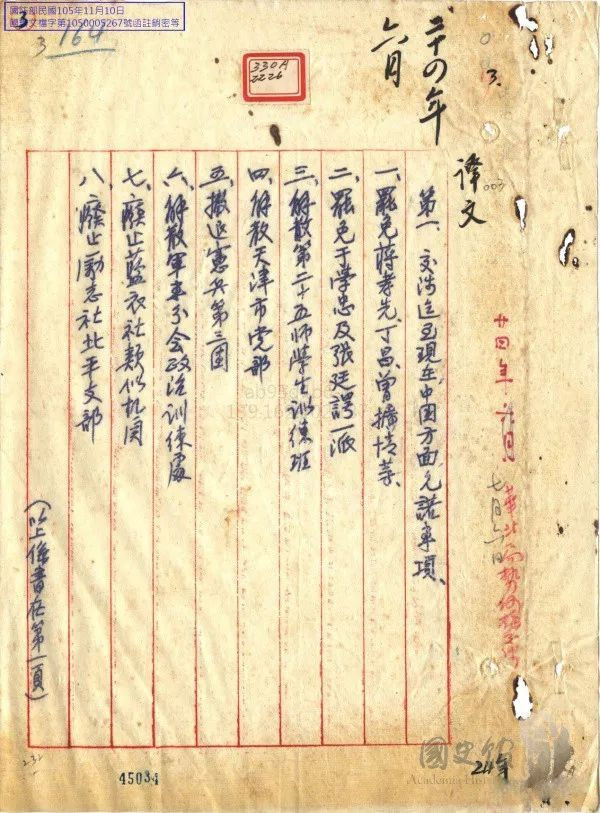 國防部民國105年11月10日
國家文檔字第1050005267號函註銷密等
3
3
164
330A
2226
二十四年
六月
3.
译文
003
廿四年 六月
七月六日
第一、交涉迄至現在中国方面允諾事項、
一、罷免蔣孝先丁昌曾擴情等、
二、罷免于学忠及張廷諤一派
三、解散第二十五师學生训練班
四、解散天津市党部
五、撤退憲兵第三團
六、解散軍事分会政治训練處
七、廢止藍衣社類似机関
八、廢止勵志社北平支部
（以上係書在第一頁）
國史館
Academia Hist
24年
232
45034